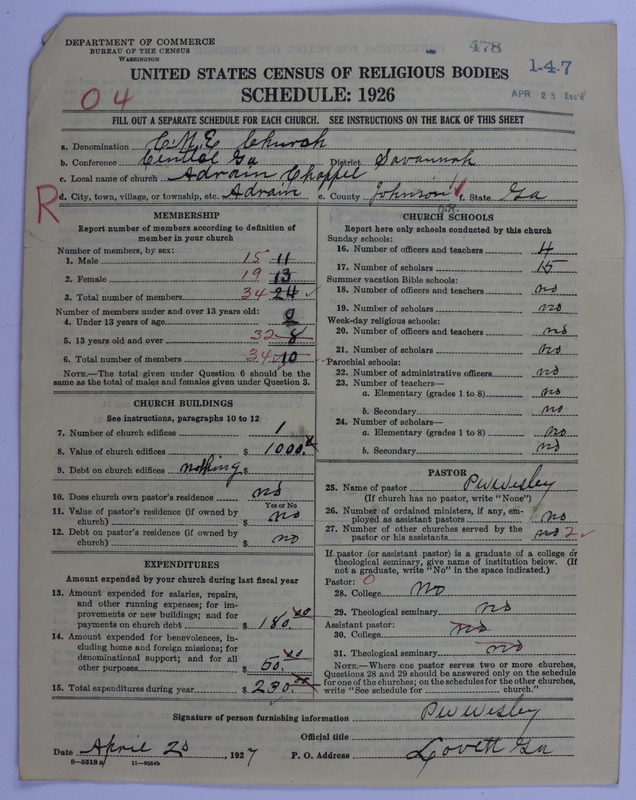 DEPARTMENT OF COMMERCE
BUREAU OF THE CENSUS
WASHINGTON
478
1-4-7
APR 23
UNITED STATES CENSUS OF RELIGIOUS BODIES
SCHEDULE: 1926
04
FILL OUT A SEPARATE SCHEDULE FOR EACH CHURCH. SEE INSTRUCTIONS ON THE BACK OF THIS SHEET
a. Denomination C.M.E. Church
b. Conference Central Ga District Savannah
c. Local name of church Adrain Chappel
R
d. City, town, village, or township, etc. Adrain e. County Johnson f. State Ga
MEMBERSHIP
Report number of members according to definition of
member in your church
Number of members, by sex:
1. Male 15 11
2. Female 19 13
3. Total number of members 34 24
Number of members under and over 13 years old:
4. Under 13 years of age 2
5. 13 years old and over 32 8
6. Total number of members 34 10
NOTE.—The total given under Question 6 should be the
same as the total of males and females given under Question 3.
CHURCH BUILDINGS
See instructions, paragraphs 10 to 12
7. Number of church edifices 1
8. Value of church edifices $ 1000.
9. Debt on church edifices nothing $
10. Does church own pastor's residence no
Yes or No
11. Value of pastor's residence (if owned by
church) $ no
12. Debt on pastor's residence (if owned by
church) $ no
EXPENDITURES
Amount expended by your church during last fiscal year
13. Amount expended for salaries, repairs,
and other running expenses; for im-
provements or new buildings; and for
payments on church debt $ 180.00
14. Amount expended for benevolences, in-
cluding home and foreign missions; for
denominational support; and for all
other purposes $ 50.00
15. Total expenditures during year $ 230.00
CHURCH SCHOOLS
Report here only schools conducted by this church
Sunday schools:
16. Number of officers and teachers 4
17. Number of scholars 15
Summer vacation Bible schools:
18. Number of officers and teachers no
19. Number of scholars no
Week-day religious schools:
20. Number of officers and teachers no
21. Number of scholars no
Parochial schools:
22. Number of administrative officers no
23. Number of teachers—
a. Elementary (grades 1 to 8) no
b. Secondary no
24. Number of scholars—
a. Elementary (grades 1 to 8) no
b. Secondary no
PASTOR
25. Name of pastor P W Wesley
(If church has no pastor, write "None")
26. Number of ordained ministers, if any, em-
ployed as assistant pastors no
27. Number of other churches served by the
pastor or his assistants no 2
If pastor (or assistant pastor) is a graduate of a college or
theological seminary, give name of institution below. (If
not a graduate, write "No" in the space indicated.)
Pastor: 0
28. College No
29. Theological seminary no
Assistant pastor:
30. College no
31. Theological seminary no
NOTE.—Where one pastor serves two or more churches,
Questions 28 and 29 should be answered only on the schedule
for one of the churches; on the schedules for the other churches,
write "See schedule for church."
Signature of person furnishing information P W Wesley
Official title
Date April 20, 1927 P. O. Address Lovett Ga
8-5518a 11-9054b